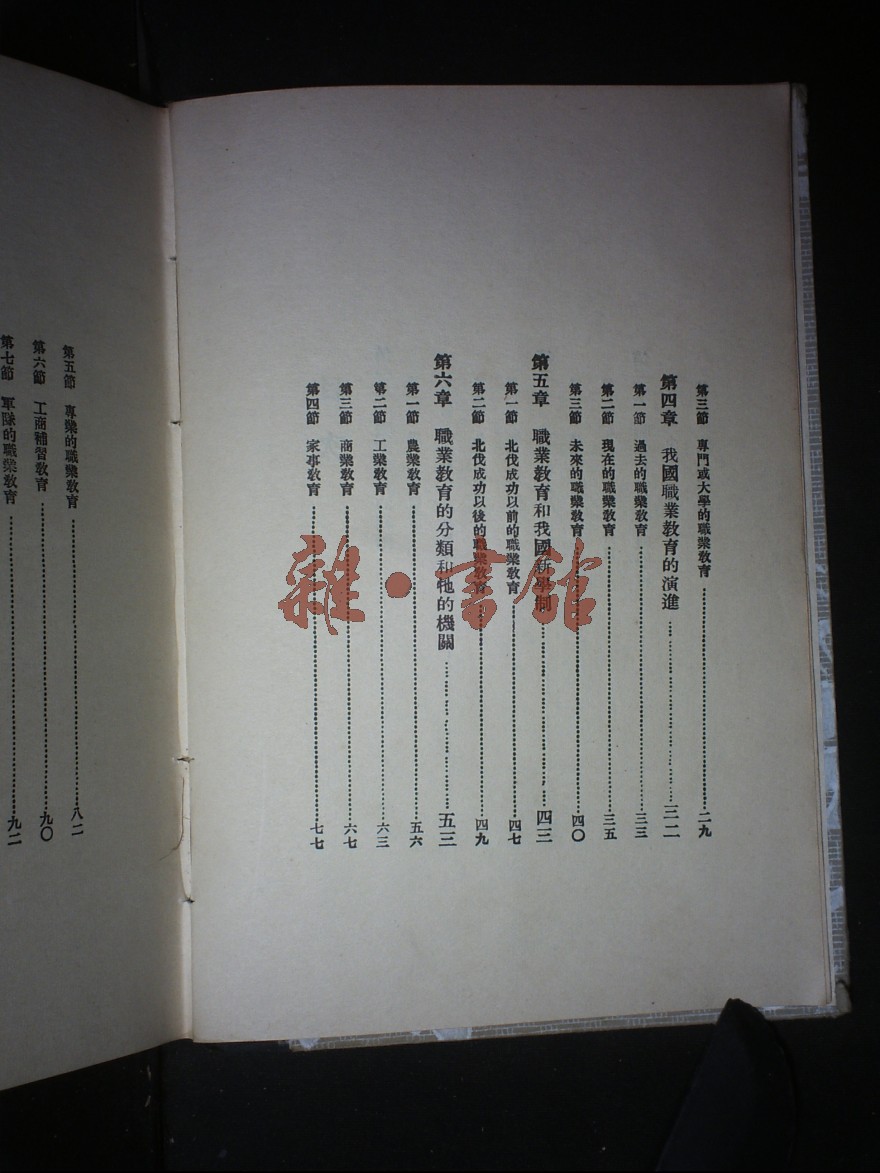 第三節 專門或大學的職業敎育……二九
第四章 我國職業敎育的演進……三二
第一節 過去的職業敎育……三三
第二節 現在的職業敎育……三五
第三節 未來的職業敎育……四〇
第五章 職業敎育和我國新學制……四三
第一節 北伐成功以前的職業敎育……四七
第二節 北伐成功以後的職業敎育……四九
第六章 職業敎育的分類和牠的機關……五三
第一節 農業敎育……五六
第二節 工業敎育……六三
第三節 商業敎育……六七
第四節 家事敎育……七七
第五節 專業的職業敎育……八二
第六節 工商補習敎育……九〇
第七節 軍隊的職業敎育……九二
雜·書館